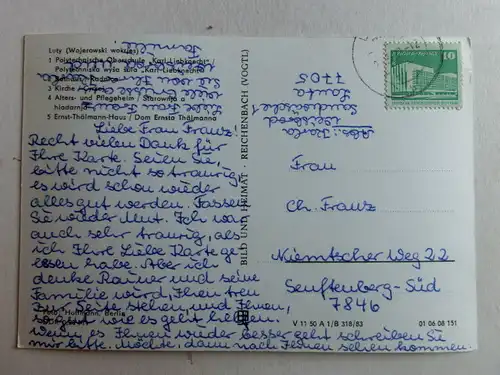 Luty (Wojerowski wokrjes)
1 Polytechnische Oberschule „Karl-Liebknecht“ /
Polytechniska wyša šula „Karl-Liebknecht“
3 Kirche
4 Alters- und Pflegeheim / Starownja a
hladarnja
5 Ernst-Thälmann-Haus / Dom Ernsta Thälmanna
Liebe Frau Franz!
Recht vielen Dank für
Ihre Karte. Seien Sie,
bitte nicht so traurig,
es wird schon wieder
alles gut werden. Fassen
Sie wieder Mut. Ich war
auch sehr traurig, als
ich Ihre Liebe Karte ge-
lesen habe. Aber ich
denke Rainer und seine
Familie wird, Ihnen treu
zur Seite stehen und Ihnen,
so gut wie es geht helfen.
Wenn es Ihnen wieder besser geht schreiben Sie
mir bitte. Möchte, dann nach Ihnen sehen kommen.
Foto: Hoffmann, Berlin
BILD UND HEIMAT · REICHENBACH (VOGTL)
V 11 50 A 1/B 318/83
01 06 08 151
10
Abs.: Karla
Lauta
7705
Frau
Ch. Franz
Niemtscher Weg 22
Senftenberg-Süd
7846